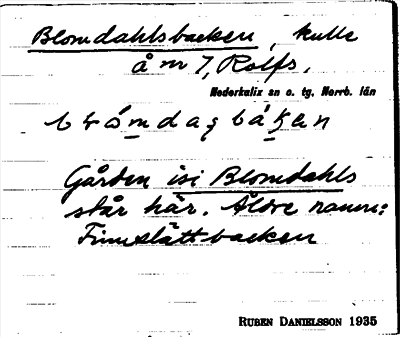 Blomdahlsbacken, kulle
å nr 7, Rolfs,
Nederkalix sn o. tg. Norrb. län
Gården isi Blomdahls
står här. Äldre namn:
Finnslättbacken
RUBEN DANIELSSON 1935